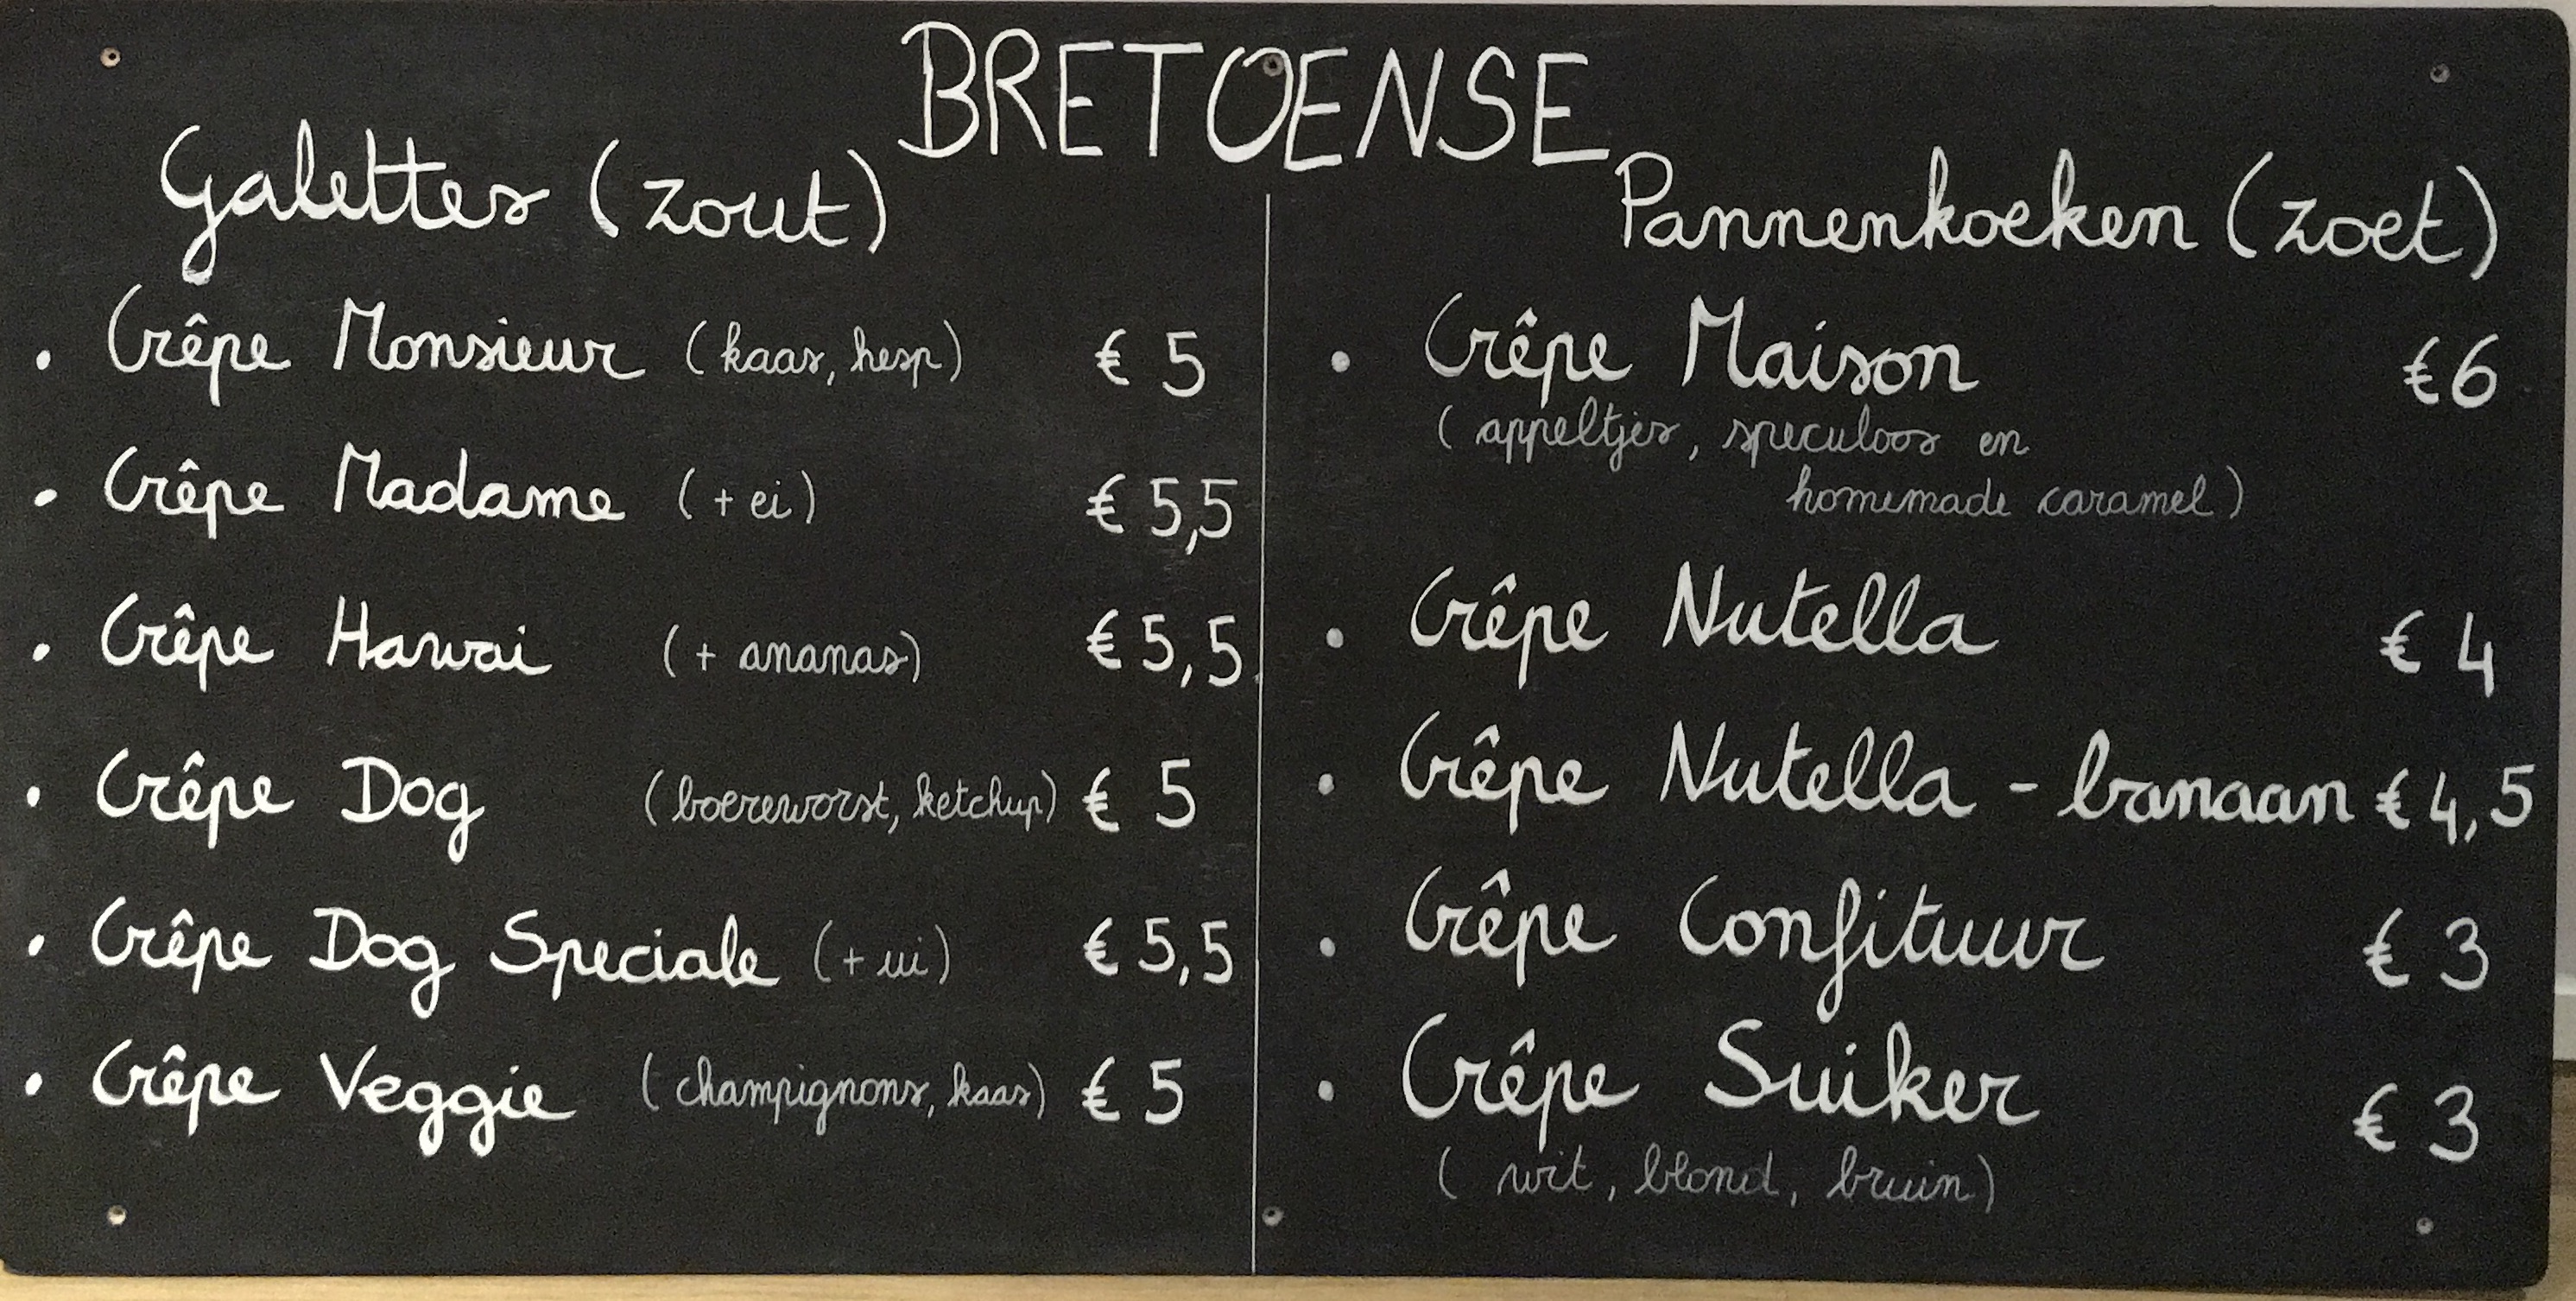 BRETOENSE
Galettes (zout)
• Crêpe Monsieur (kaas, hesp) € 5
• Crêpe Madame (+ ei) € 5,5
• Crêpe Hawai (+ ananas) € 5,5
• Crêpe Dog (boereworst, ketchup) € 5
• Crêpe Dog Speciale (+ ui) € 5,5
• Crêpe Veggie (champignons, kaas) € 5
Pannenkoeken (zoet)
• Crêpe Maison €6
(appeltjes, speculoos en
homemade caramel)
• Crêpe Nutella € 4
• Crêpe Nutella - banaan € 4,5
• Crêpe Confituur € 3
• Crêpe Suiker € 3
(wit, blond, bruin)